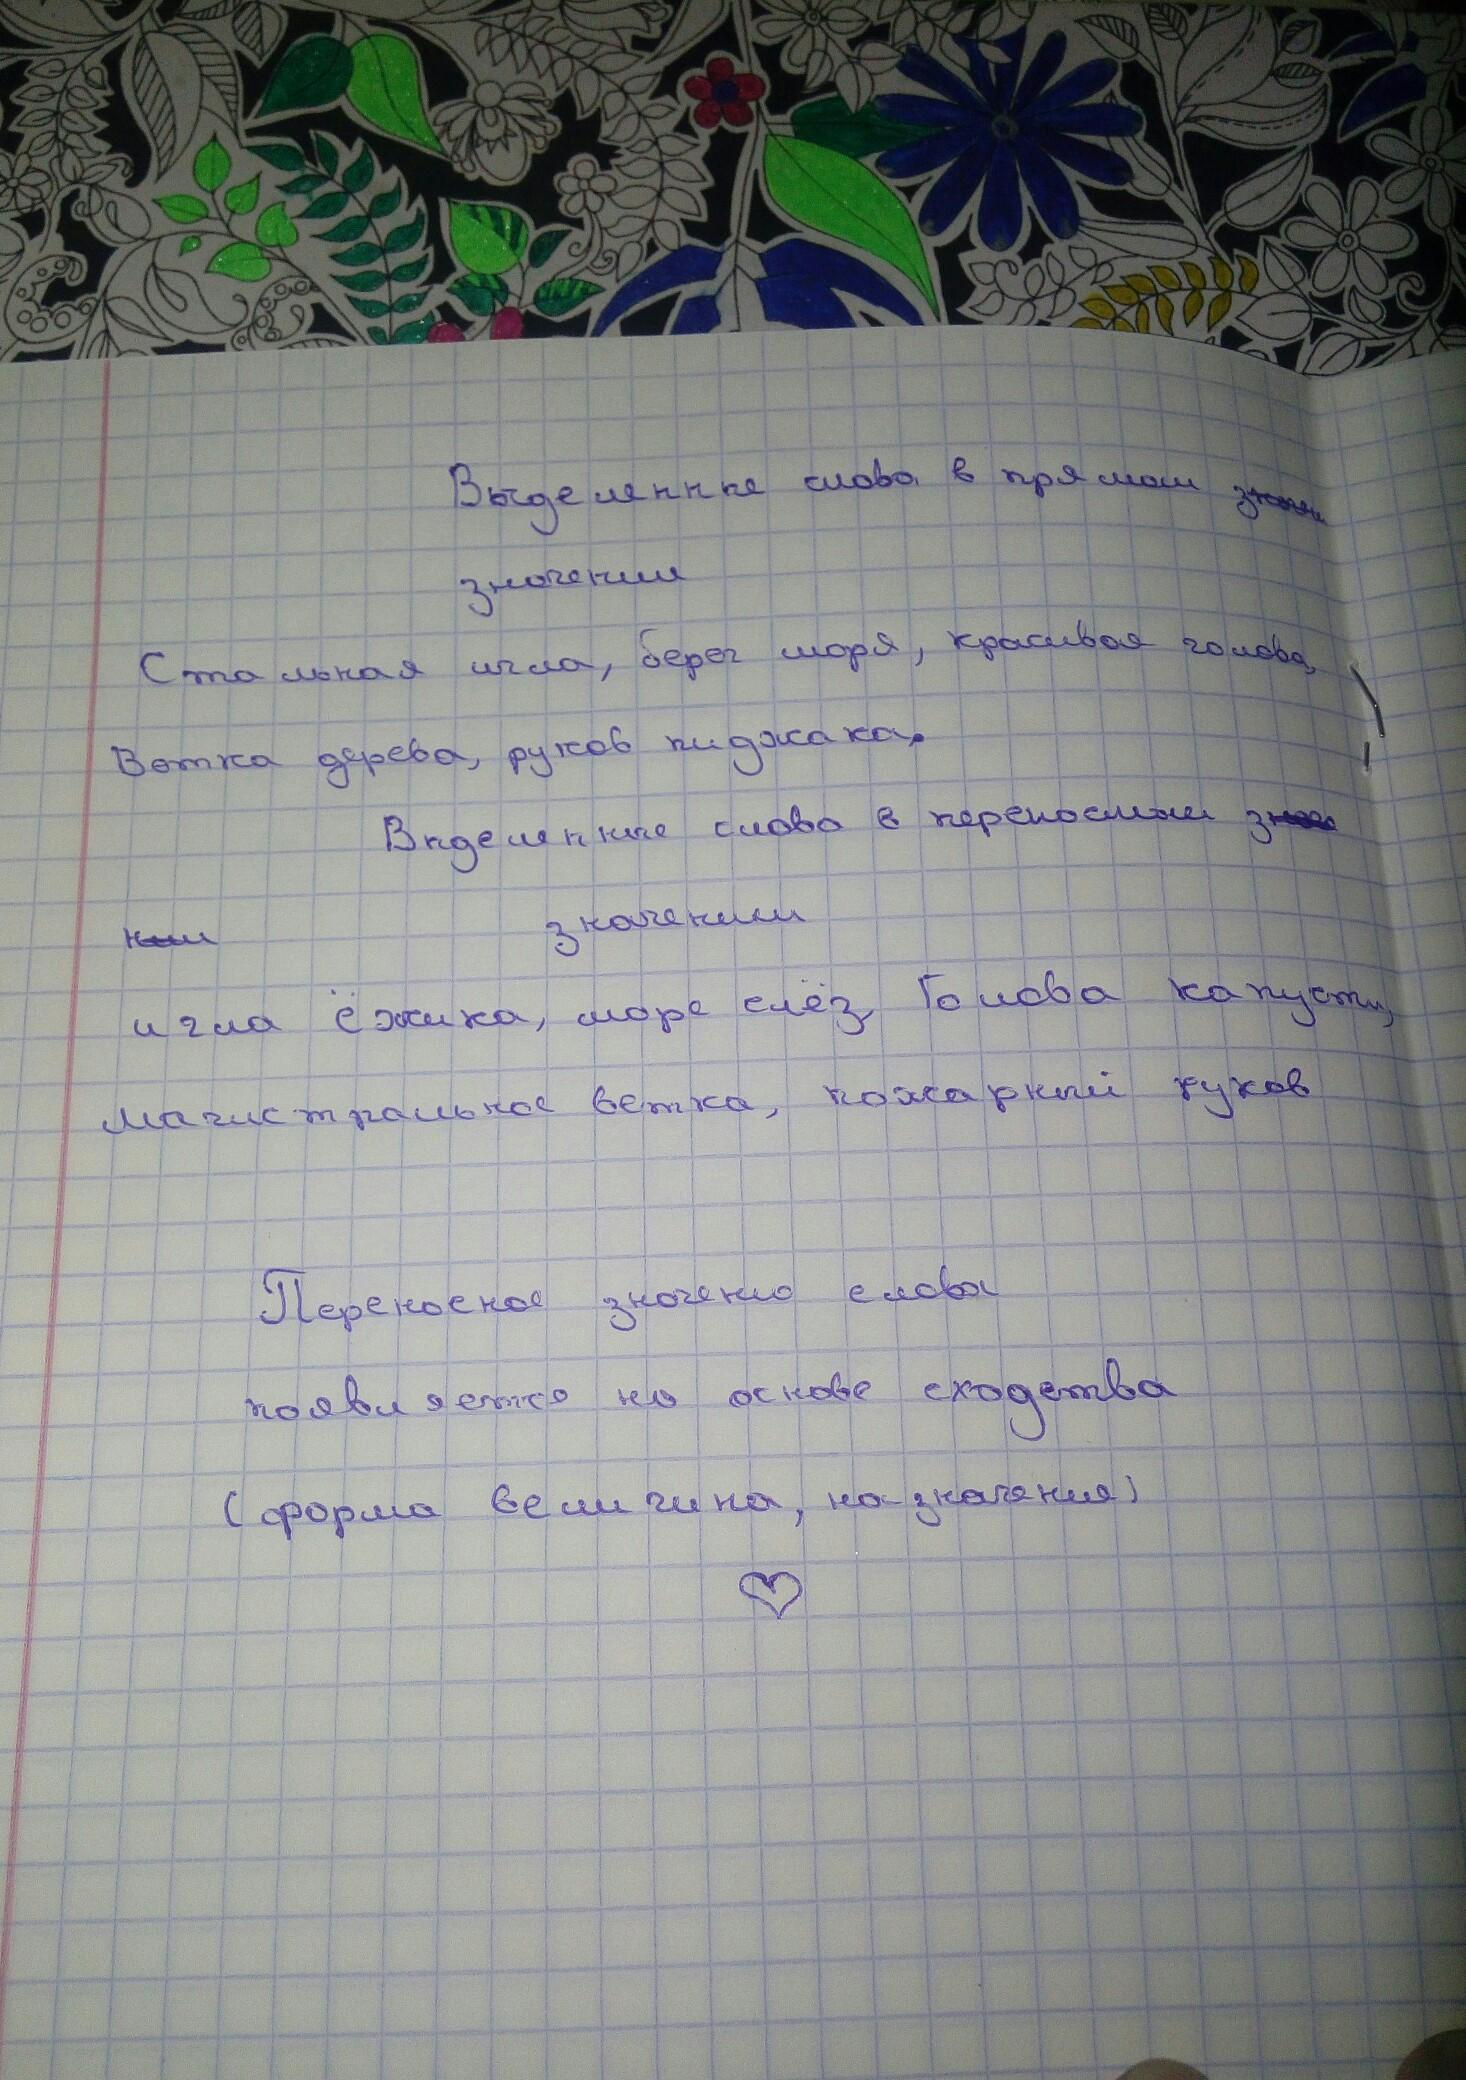 Выделенные слова в прямом
значении
Стальная игла, берег моря, красивая голова,
Ветка дерева, рукав пиджака.
Выделенные слова в переносном
значении
игла ёжика, море слёз, Голова капусты,
магистральное ветка, пожарный рукав
Переносное значение слова
появляется на основе сходства
(форма величина, назначения)